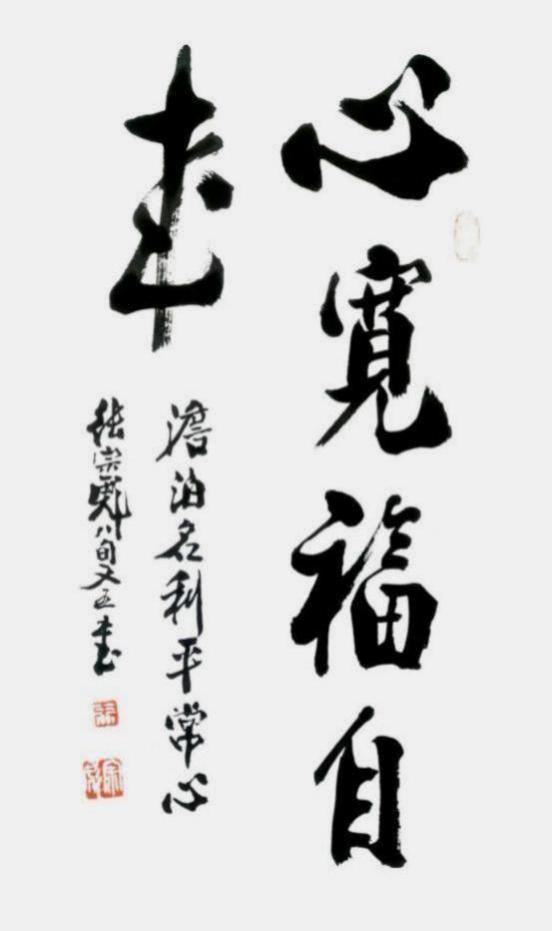 心寬福自
來
澹泊名利平常心
張宗八旬又五書